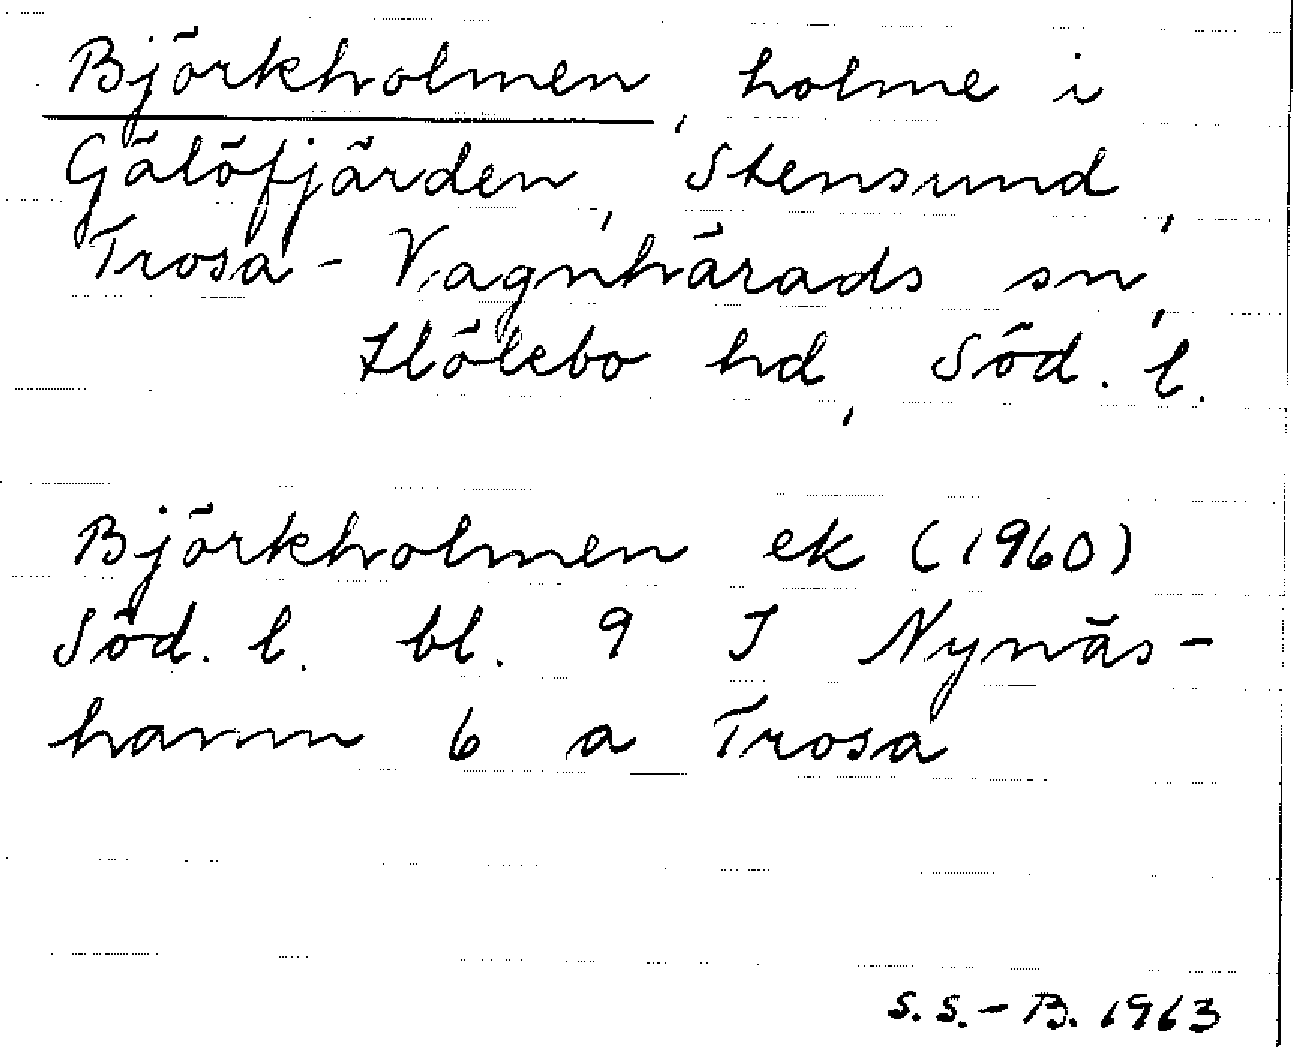 Björkholmen, holme i
Gälöfjärden, Stensund,
Trosa-Vagnhärads sn,
Hölebo hd, Söd. l.
Björkholmen ek (1960)
Söd. l. bl. 9 I Nynäs-
hamn 6 a Trosa
S. S.-B. 1963